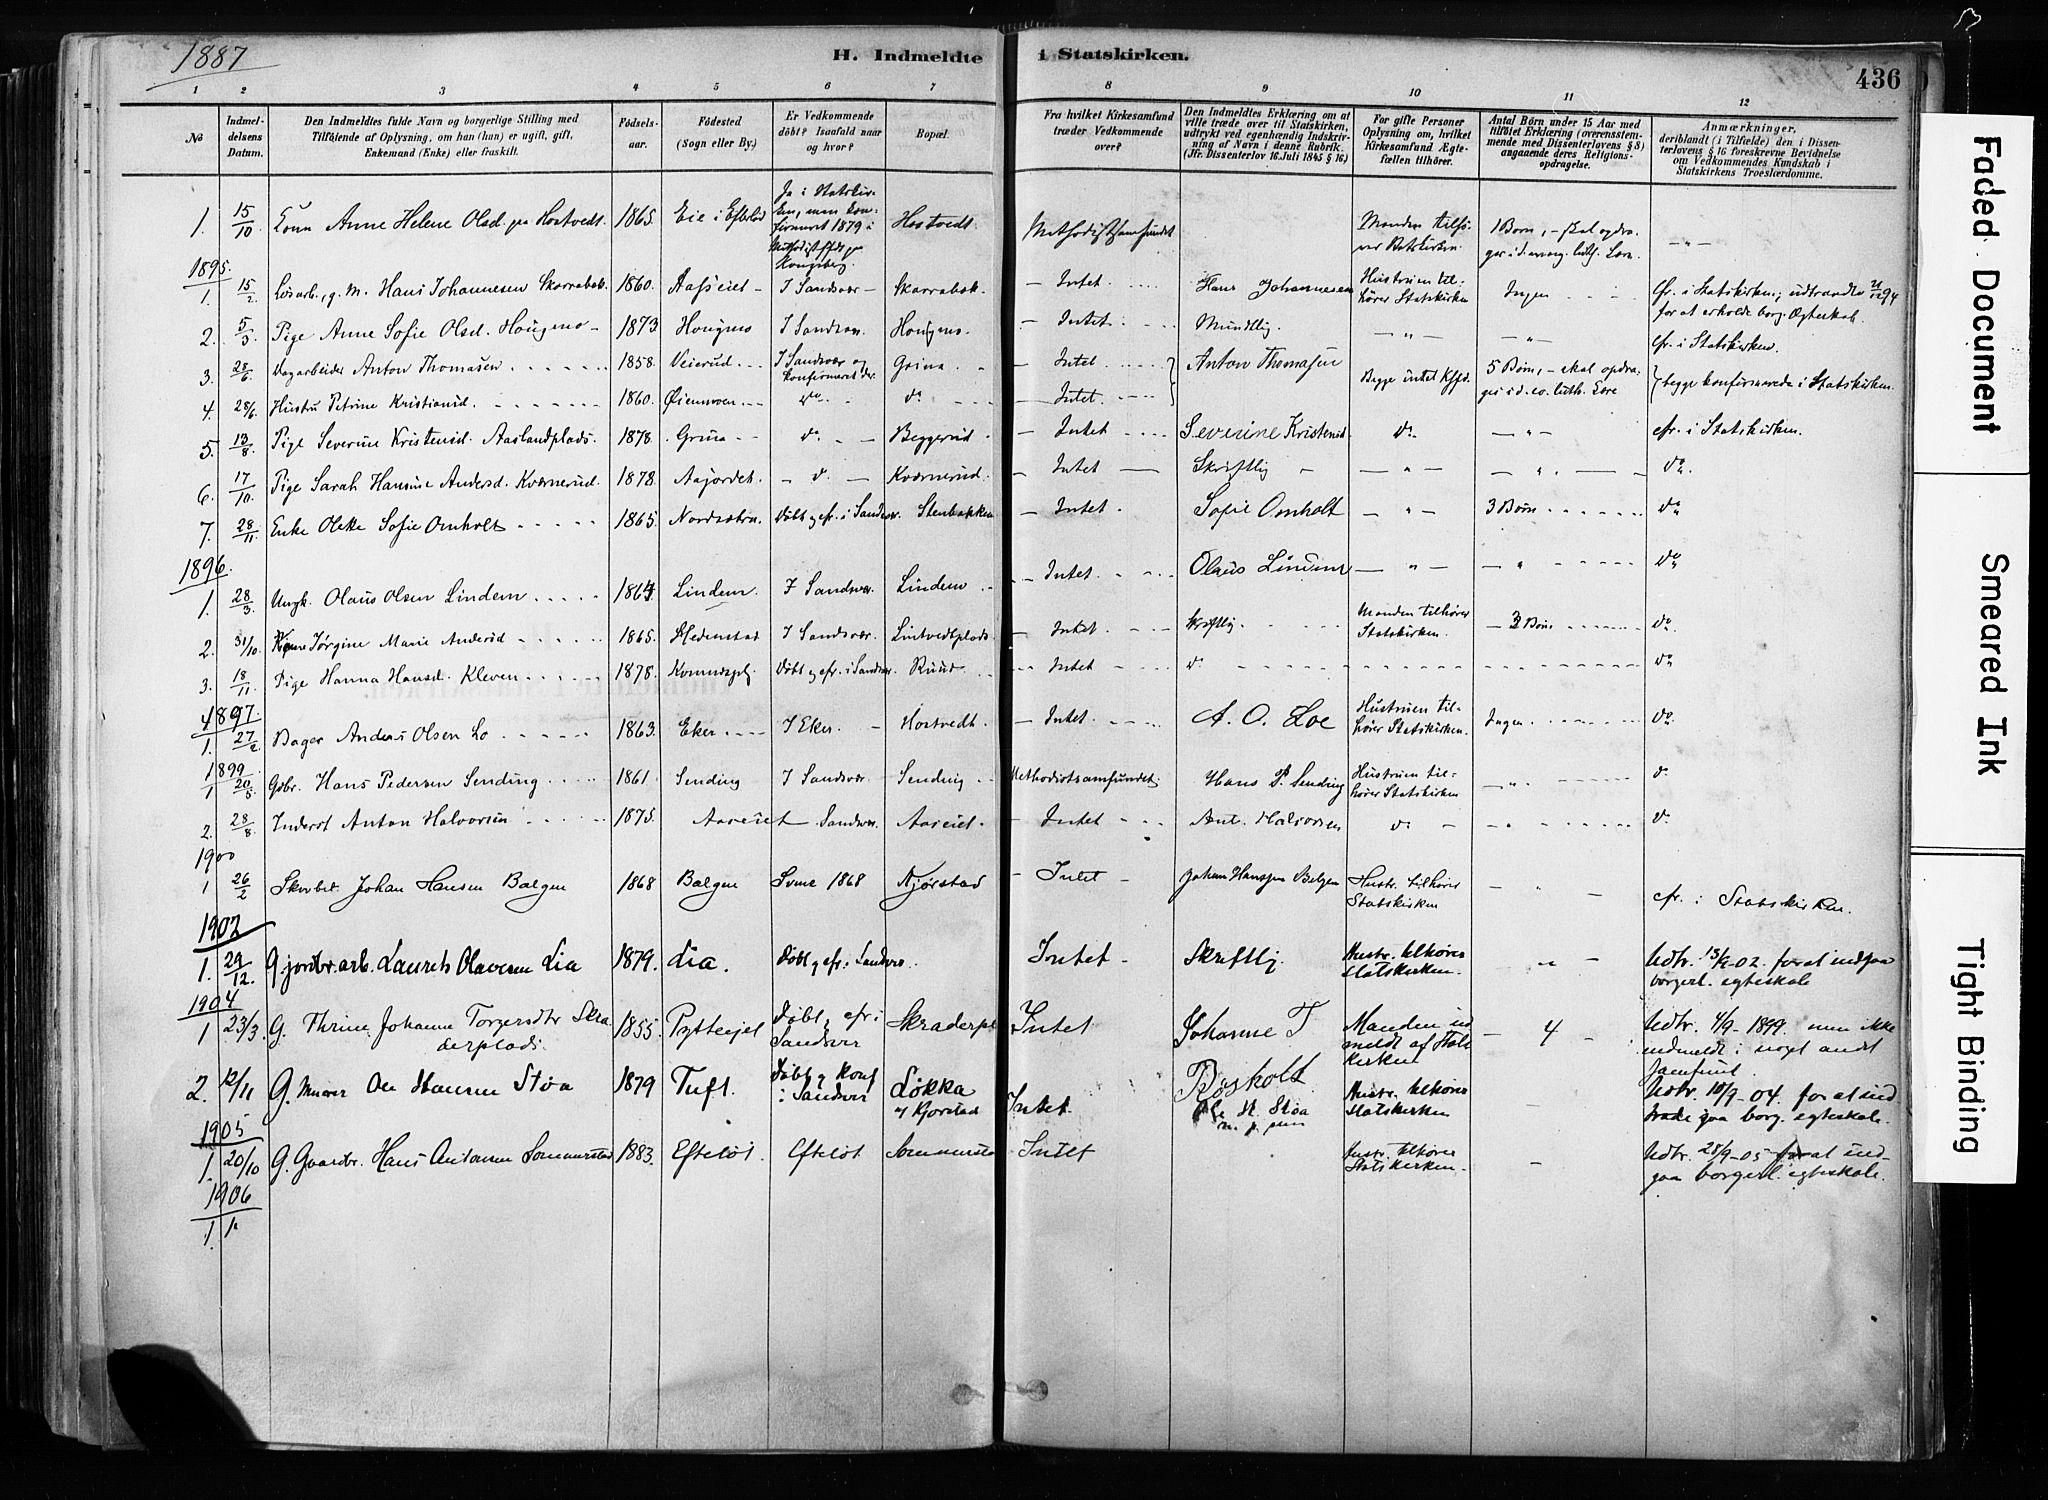 1887
H. Indmeldte i Statskirken.
436
1 2 3 4 5 6 7 8 9 10 11 12
No
Indmel-
delsens
Datum.
Den Indmeldtes fulde Navn og borgerlige Stilling med
Tilföiende af Oplysning, om han (hun) er ugift, gift,
Enkemand (Enke) eller fraskilt.
Födsels-
aar.
Födested
(Sogn eller By.)
Er Vedkommende
döbt? Isaafald naar
og hvor?
Bopæl.
Fra hvilket Kirkesamfund
træder Vedkommende
over?
Den Indmeldtes Erklæring om at
ville træde over til Statskirken,
udtrykt ved egenhændig Indskriv-
ning af Navn i denne Rubrik.
(Jfr. Dissenterlov 16. Juli 1845 § 16.)
For gifte Personer
Oplysning om, hvilket
Kirkesamfund Ægte-
fællen tilhörer.
Antal Börn under 15 Aar med
tilföiet Erklæring (overensstem-
mende med Dissenterlovens § 8)
angaaende deres Religions-
opdragelse.
Anmærkninger,
deriblandt (i Tilfælde) den i Dissen-
terlovens § 16 foreskrevne Bevidnelse
om Vedkommendes Kundskab i
Statskirkens Troeslærdomme.
1. 15/10 Kone Anne Helene Olsd. paa Hostvedt. 1865. Eie i Efteløt Ja i Statskir-
ken, men kon-
firmeret 1879 i
Methodistsfdt paa
Kongsberg. Hostvedt Methodistsamfundet Manden tilhø-
rer Statskirken. 1 Barn, - skal opdra-
ges i d. evang. luth. Lærn. - " -
1895.
1. 15/2 Løsarb., g. M. Hans Johannesen Skarrabæk. 1860. Aasseiet - I Sandsvær - Skarrabæk. - Intet. Hans Johannesen Hustruen til-
hører Statskirken Ingen cfr. i Statskirken; udtraadte 94
for at erholde borg. Ægteskab.
2. 5/3 Pige Anne Sofie Olsd. Hougmo - 1873 Hougmo I Sandsvær. Hougmo. - Intet. Mundtlig. - " - - " - cfr. i Statskirken.
3. 28/6 Dagarbeider Anton Thomasen 1858. Veierud I Sandsvær og
konfirmeret der. Grina. - Intet. Anton Thomasen Begge intet Ksfd. 5 Børn, - skal opdra-
ges i d. ev. luth. Lære } begge konfirmerede i Statskirken.
4. 28/6 Hustru Petrine Kristiansd. 1860. Øienmoen do. do. - Intet.
5. 13/8 Pige Severine Kristensd. Aaslandplads. 1878. Grina do. - Beggerud - Intet. Severine Kristensd do. - " - cfr. i Statskirken.
6. 17/10 Pige Sarah Hansine Andersd. Kværnerud. 1878. Aajordet. - do. - Kværnerud. - Intet - Skriftlig - - " - - " - do.
7. 28/11 Enke Olette Sofie Omholt 1865. Nordsetra. Døbt og cfr. i Sandsvær. Stenbakken - Intet. Sofie Omholt - " - 3 Børn do.
1896.
1. 28/3 Ungk. Olaus Olsen Lindem 1864. Lindem. I Sandsvær. Lindem - Intet. Olaus Lindem - " - - " - do.
2. 31/10 Kone Jørgine Marie Andersd 1865. Hedenstad I Sandsvær. Lintvedtplads. - Intet. skriftlig. Manden tilhører
Statskirken. - 3 Børn do.
3. 18/11 Pige Hanna Hansd. Kleven 1878. Døbt og cfr. i Sandsvær. Ruud - Intet do. do.
1897.
1. 27/2 Bager Anders Olsen Lo 1863. Eker I Eker. - Hostvedt. - Intet. A. O. Loe Hustruen til-
hører Statskirken. Ingen do.
1899.
1 20/5 Gbr. Hans Pedersen Sending 1861. Sending I Sandsvær - Sending Methodistsamfundet. Hans P. Sending Hustruen til-
hører Statskirken - " - do.
2. 28/8 Inderst Anton Halvorsen 1875. Aaseiet Sandsvær. Aaseiet. - Intet Ant. Halvorsen do. - - " - do.
1900
1 26/2 Johan Hansen Bælgen 1868 Bælgen Svene 1868 Kjørstad - Intet - Johan Hanssen Belgen Hustr. tilhører
Statskirken - " - cfr. i Statskirken.
1902
1. 29/12. Gjordbr.arb. Laurits Olavesen Lia 1879. Lia. Døbt og cfr. i Sandsvær. Intet - Skriftlig. Hustr. tilhører
Statskirken. " - Udtr. 13/9-02. for at indgaa
borgerl. egteskab
1904
1 23/3. G. Thrine Johanne Torgersdtr Skra
derplads. 1855. Pytteejet Døbt og cfr. i
Sandsver Skraderpl Intet Johanne T
Børsholt Manden ud
meldt af Stats
kirken - 4 - Udtr. 4/9-1899. men ikke
indmeldt i noget andet
Samfund.
2. 12/11 G. Murer Ole Hansen Støa 1879 Tuft. Døbt og konf
i Sandsver Løkka
u/ Kjørstad Intet. Ole H. Støa
m. p. pen Hustr. tilhører
Statskirken - Udtr. 10/9-04. for at ind
træde gaa borg. egteskab.
1905
1. 20/10 G. Gaardbr. Hans Antonsen Sommerstad 1883. Efteløt. Efteløt Sommerstad Intet Hustr. tilhører
Statskirken. - Udtr. 28/9-05 for at ind-
gaa borgerl. egteskab.
1906
1. 1.
Faded Document
Smeared Ink
Tight Binding